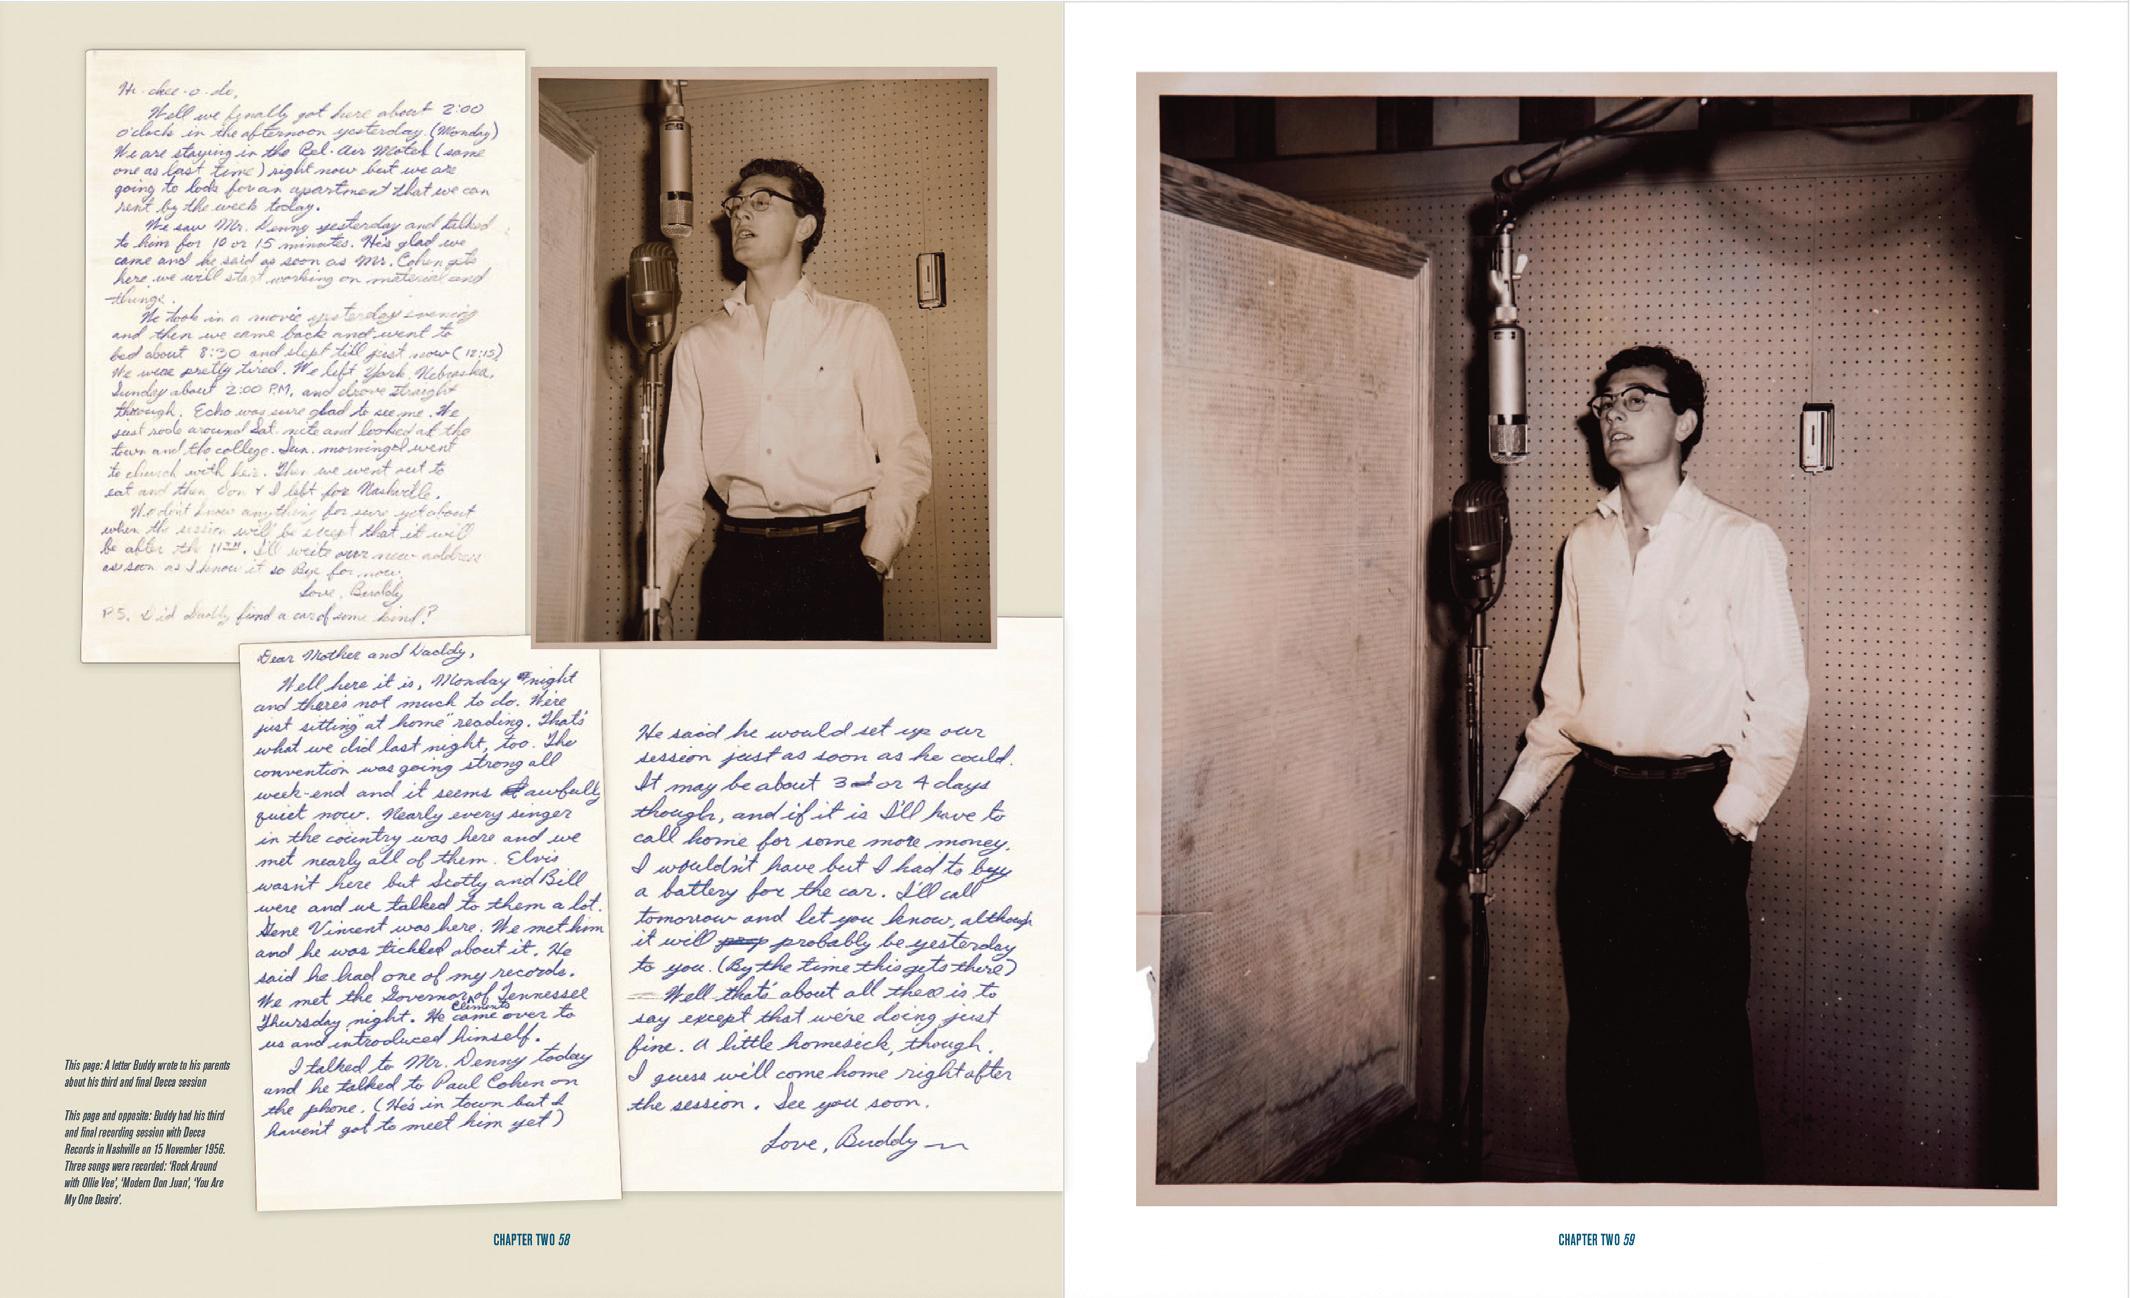 Hi-chee-o-do,
Well we finally got here about 2:00
o'clock in the afternoon yesterday. (Monday)
We are staying in the Bel-Air Motel (same
one as last time) right now but we are
going to look for an apartment that we can
rent by the week today.
We saw Mr. Denny yesterday and talked
to him for 10 or 15 minutes. He's glad we
came and he said as soon as Mr. Cohen gets
here we will start working on material and
things.
We took in a movie yesterday evening
and then we came back and went to
bed about 8:30 and slept till just now (12:15)
We were pretty tired. We left York, Nebraska,
Sunday about 2:00 P.M. and drove straight
through. Echo was sure glad to see me. We
just rode around Sat. nite and looked at the
town and the college. Sun. morning I went
to church with her. Then we went out to
eat and then Don & I left for Nashville.
We don't know anything for sure yet about
when the session will be except that it will
be after the 11th. I'll write our new address
as soon as I know it so Bye for now.
Love, Buddy
P.S. Did Daddy find a car of some kind?
Dear Mother and Daddy,
Well here it is, Monday night
and there's not much to do. We're
just sitting "at home" reading. That's
what we did last night, too. The
convention was going strong all
week-end and it seems awfully
quiet now. Nearly every singer
in the country was here and we
met nearly all of them. Elvis
wasn't here but Scotty and Bill
were and we talked to them a lot.
Gene Vincent was here. We met him
and he was tickled about it. He
said he had one of my records.
We met the Governor of Tennessee
Clements
Thursday night. He came over to
us and introduced himself.
I talked to Mr. Denny today
and he talked to Paul Cohen on
the phone. (He's in town but I
haven't got to meet him yet)
He said he would set up our
session just as soon as he could.
It may be about 3 or 4 days
though, and if it is I'll have to
call home for some more money.
I wouldn't have but I had to buy
a battery for the car. I'll call
tomorrow and let you know, although
it will probably be yesterday
to you. (By the time this gets there)
Well that's about all there is to
say except that we're doing just
fine. A little homesick, though.
I guess we'll come home right after
the session. See you soon.
Love, Buddy
This page: A letter Buddy wrote to his parents
about his third and final Decca session
This page and opposite: Buddy had his third
and final recording session with Decca
Records in Nashville on 15 November 1956.
Three songs were recorded: 'Rock Around
with Ollie Vee', 'Modern Don Juan', 'You Are
My One Desire'.
CHAPTER TWO 58
CHAPTER TWO 59